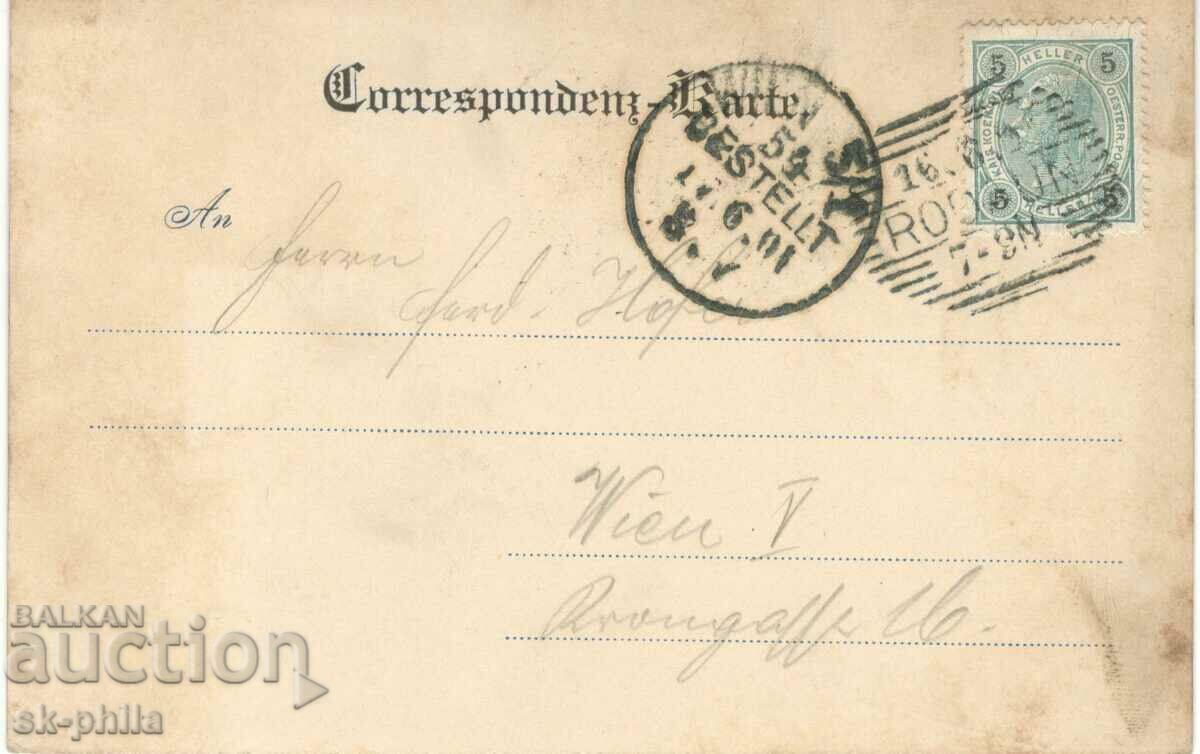 Correspondenz-Karte.
5 HELLER 5
KAIS. KOEN. OESTERR. POST
5 HELLER 5
WIEN
54
BESTELLT
6 01
16. 6.
ROD
7-9N
An
Herrn
Ferd. Hofer
Wien V
Krongasse 16.
BALKAN
auction
sk-phila